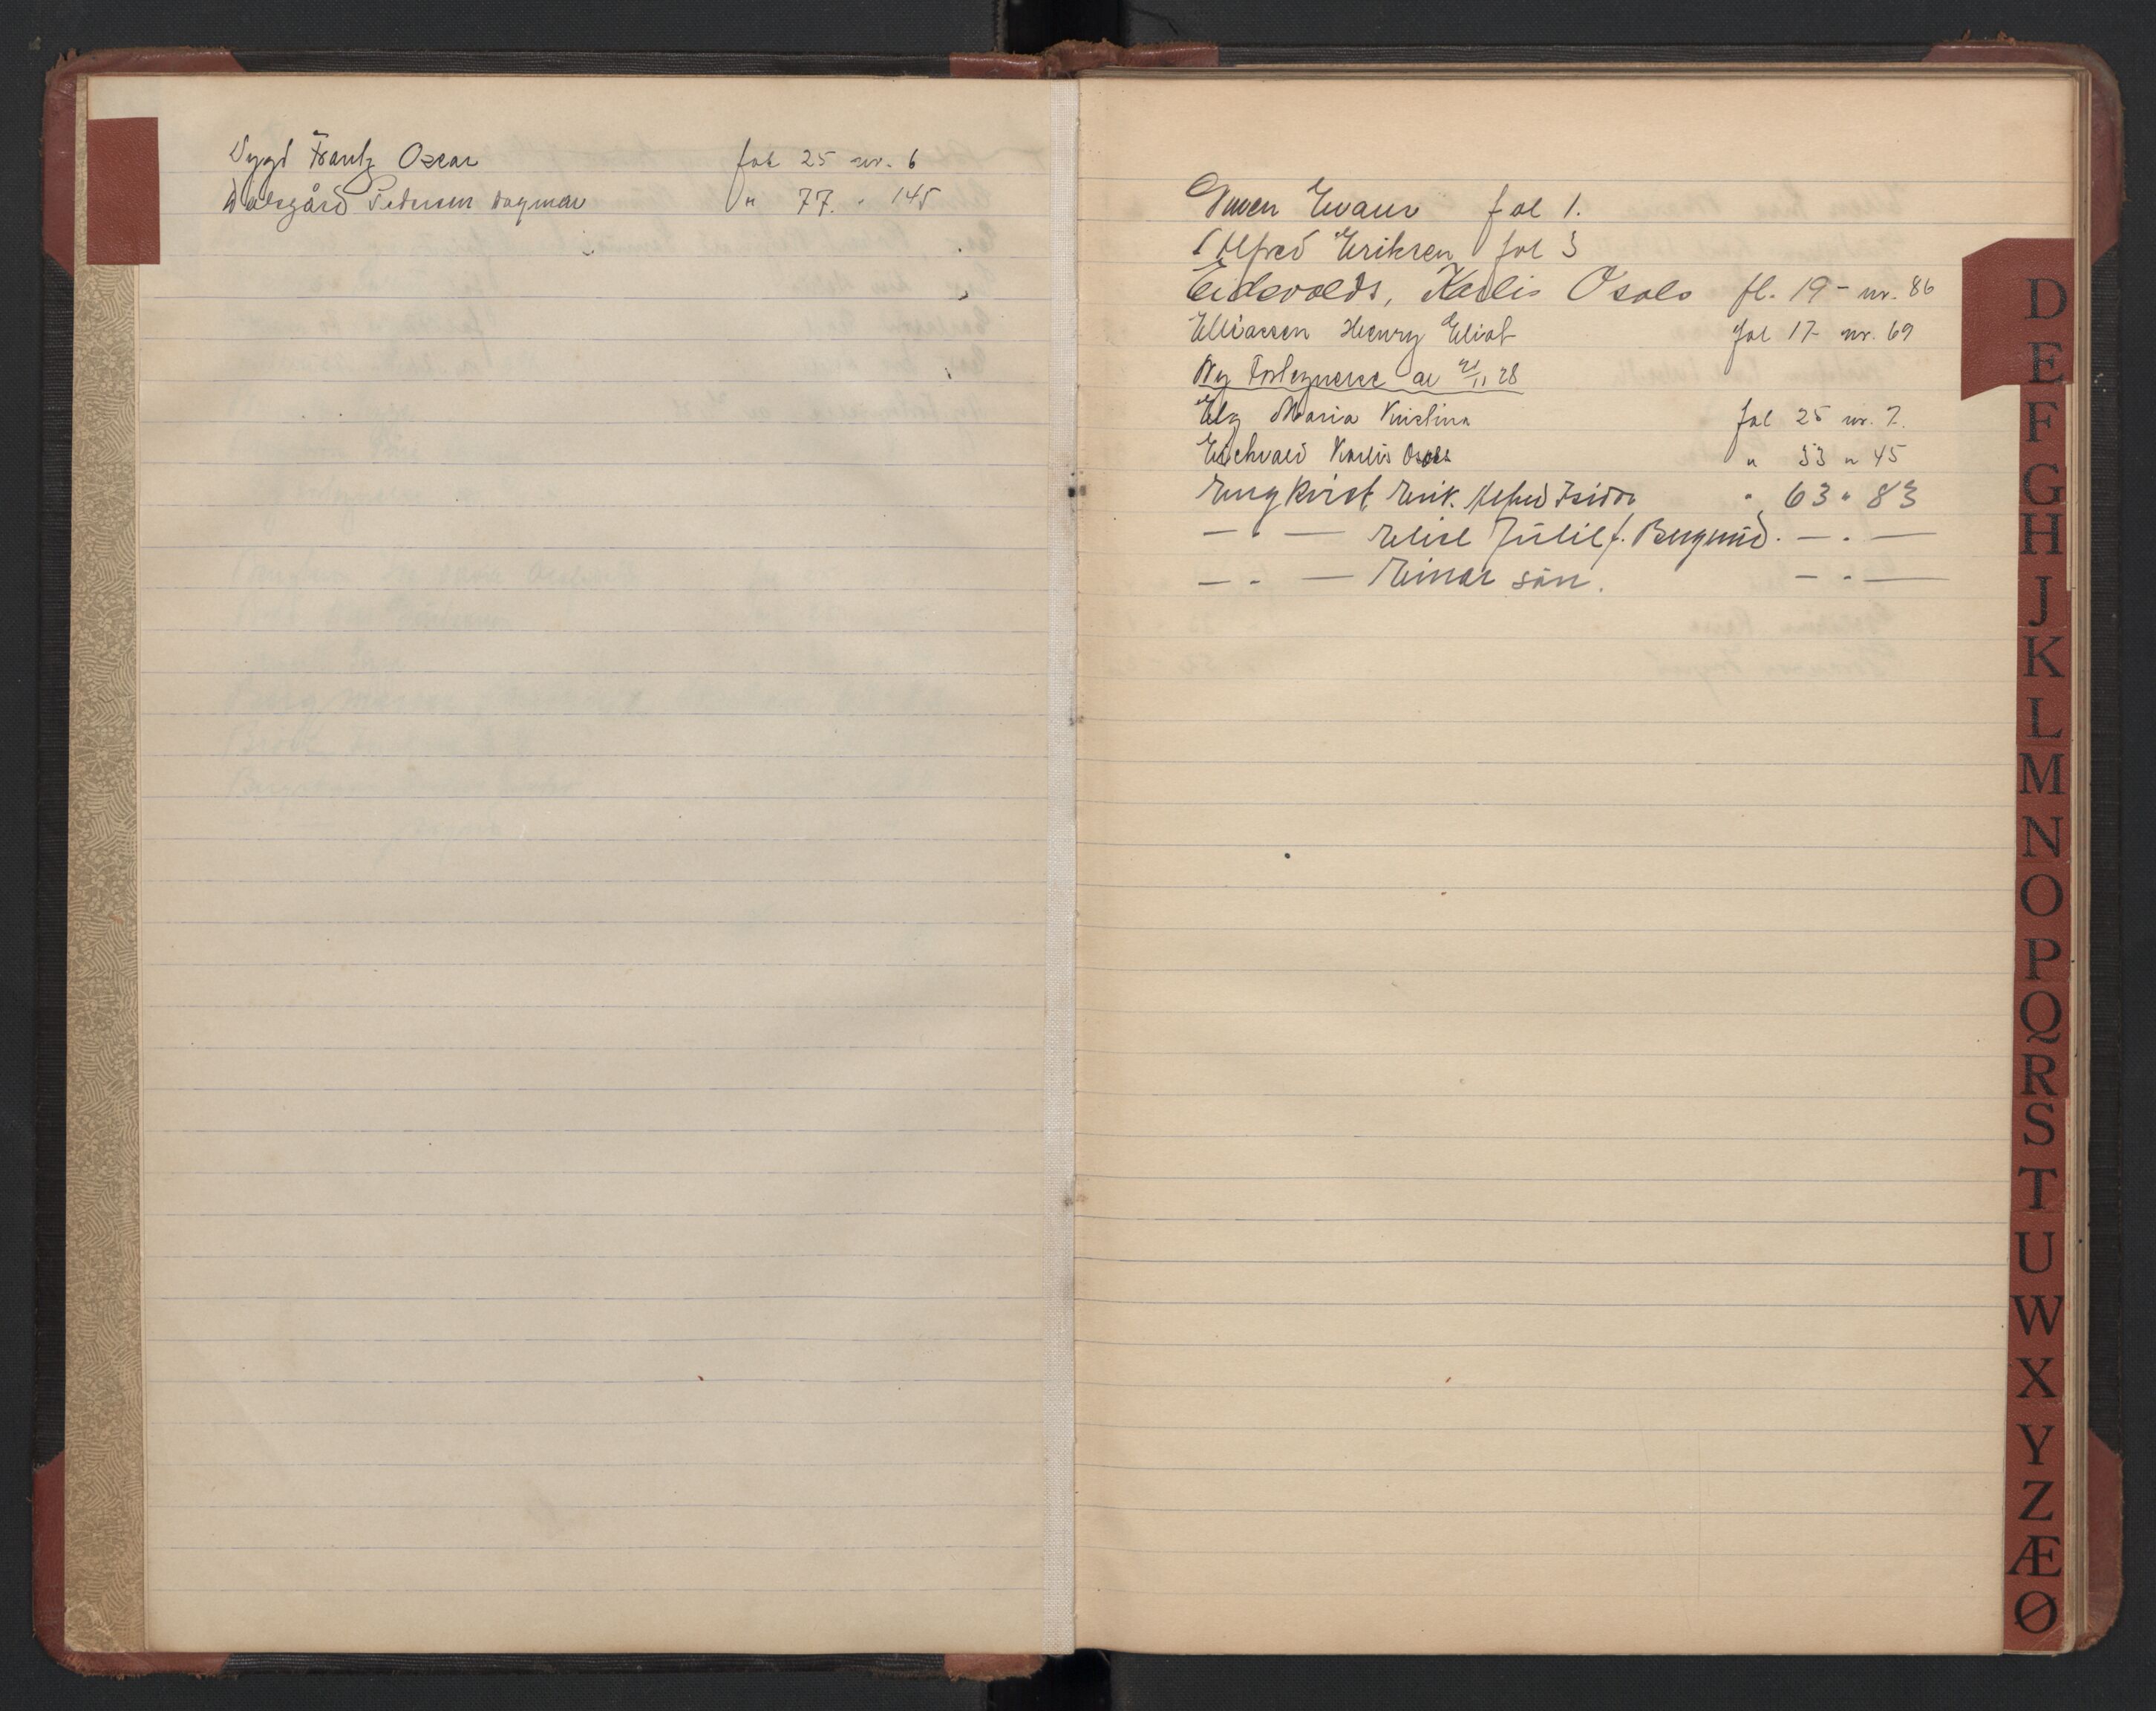 Dygd Frantz Oscar fol 25 nr. 6
Dalsgård Pedersen Dagmar " 77. " 145
Owen Evans fol 1.
Alfred Eriksen fol 3
Eidsvolds, Karlis Osols fl. 19 - nr. 86
Elliassen Henry Eliot fol 17 - nr. 69
Ny Fortegnelse av 21/11 28
Elg Maria Kristina fol 25 nr. 7.
Eichvald Karlis Osols " 33 " 45
Engkvist Erik. Alfred Isidor " 63 " 83
— " — Elise Julie f. Berglund. — " —
— " — Einar sön. — " —
D
E
F
G
H
J
K
L
M
N
O
P
Q
R
S
T
U
W
X
Y
Z
Æ
Ø